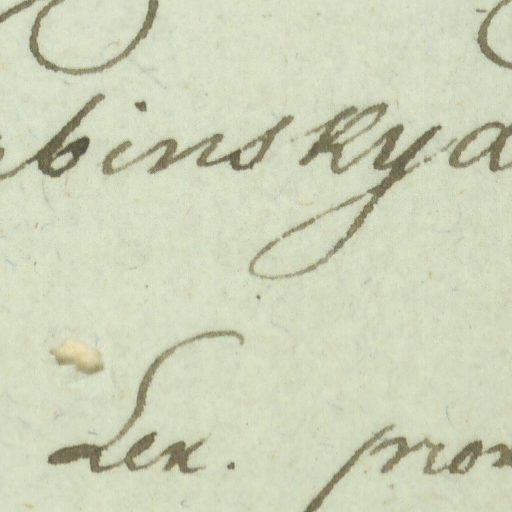 binskya
Lex. prom